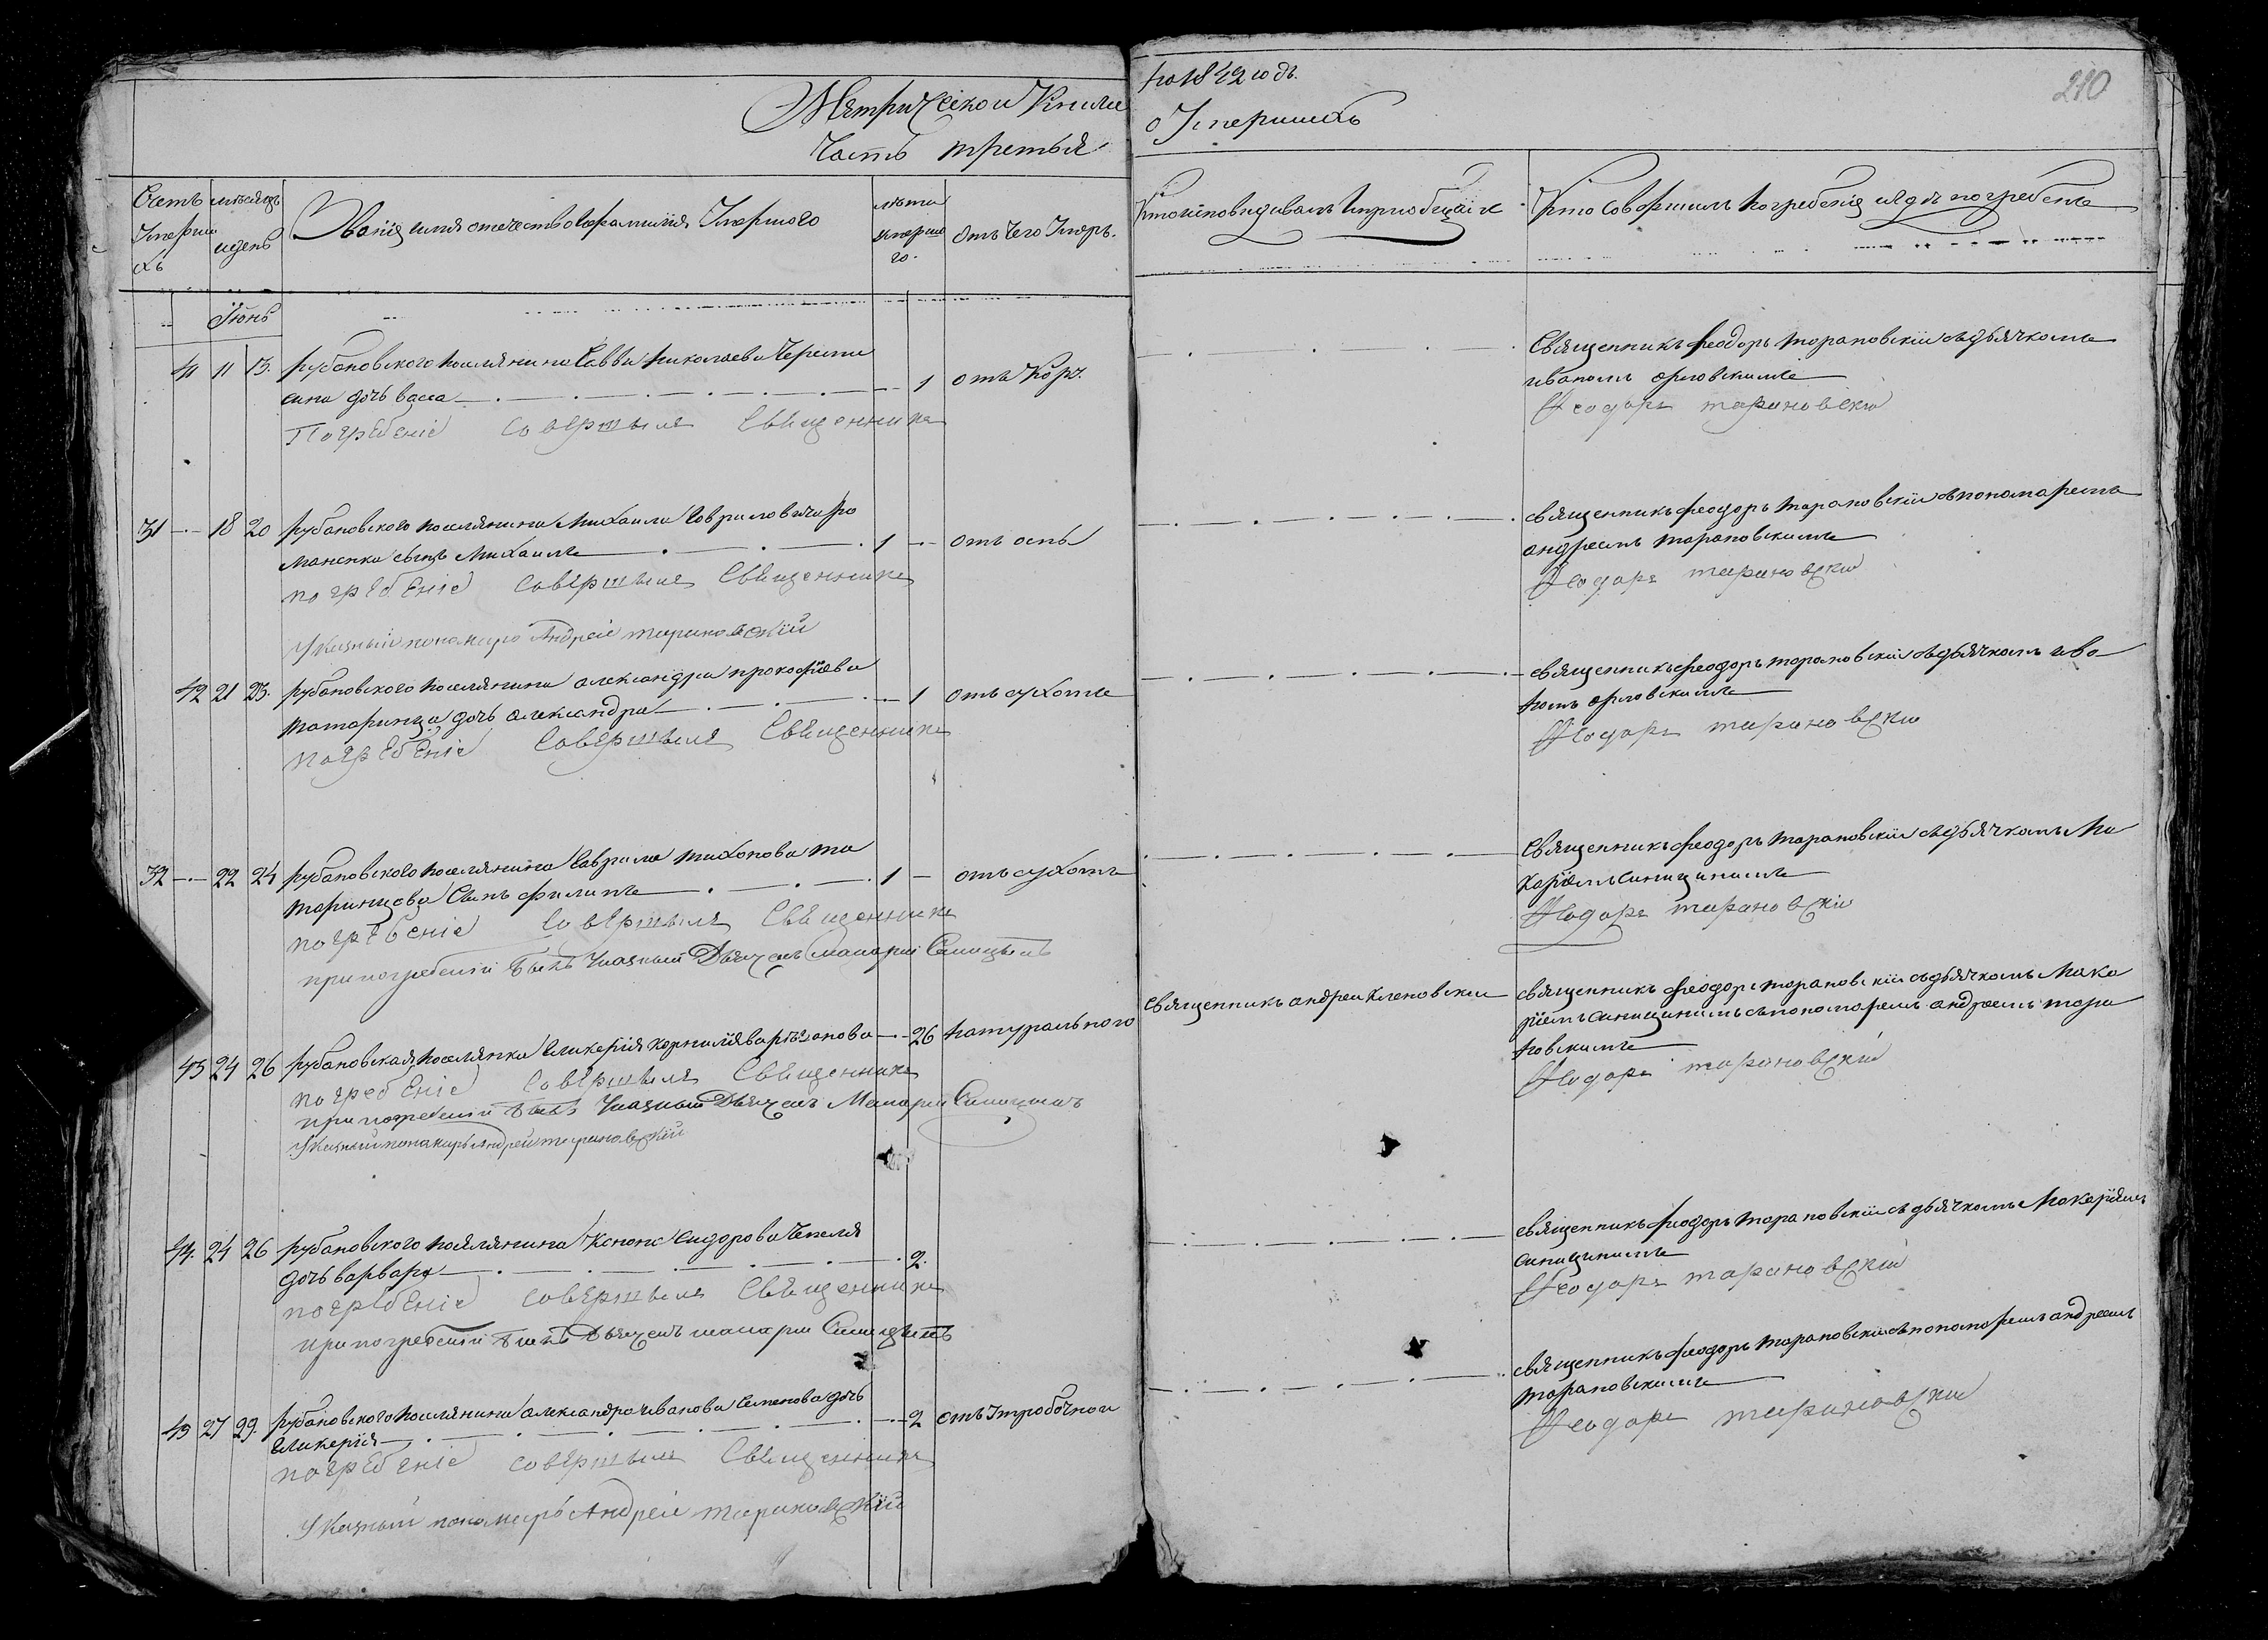 Метрической Книги
на 1842 годъ.
210
Часть третья
о Умершихъ
Счетъ Умершихъ
мѣсяцъ и день
Званіе имя отечество и фамилія Умершого
лѣта умершого.
отъ чего Умеръ.
Кто исповедывалъ и приобщалъ
Кто Совершилъ погребеніе и гдѣ погребены
Іюнь
41 11 13. рубановского поселянина Саввы Николаева
сина дочь васса 1 отъ Кору.
Священникъ феодоръ тарановскій съ дьячкомъ
иваномъ орловскимъ
Погребеніе Совершилъ Священникъ
Феодоръ тарановскій
31 18 20 рубановского поселянина Михаила Гаврилова
сынъ Михаилъ 1 отъ оспы
священникъ феодоръ тарановскій съ пономаремъ
андреемъ тарановскимъ
погребеніе Совершилъ Священникъ
Феодоръ тарановскій
Указный пономарь Андрей тарановскій
42 21 23. рубановского поселянина александра прокофіева
татаринца дочь александра 1 отъ сухоты
священникъ феодоръ тарановскій съ дьячкомъ ива
номъ орловскимъ
погребеніе Совершилъ Священникъ
Феодоръ тарановскій
32 22 24 рубановского поселянина Гаврила тихонова та
таринцова Сынъ филипъ 1 отъ сухоты
Священникъ феодоръ тарановскій съ дьячкомъ Ма
каріемъ синицинымъ
погребеніе Совершилъ Священникъ
Феодоръ тарановскій
при погребеніи былъ Указный Дьячекъ макарій Синицынъ
43 24 26 рубановская поселянка гликерія корнилія 26 натурального
Священникъ андрей
священникъ феодоръ тарановскій съ дьячкомъ Мака
ріемъ синицинымъ съ пономаремъ андреемъ тара
новскимъ
погребеніе Совершилъ Священникъ
Феодоръ тарановскій
при погребеніи былъ Указный Дьячекъ Макарій Синицынъ
Указный пономарь Андрей тарановскій
44. 24 26 рубановского поселянина Конона Сидорова
дочь варвара 2.
священникъ феодоръ тарановскій съ дьячкомъ Макаріемъ
синицинымъ
погребеніе совершилъ Священникъ
Феодоръ тарановскій
при погребеніи былъ Дьячекъ макарій Синицынъ
27 29. рубановского поселянина александра иванова Семенова дочь
гликерія 2 отъ Утробочной
священникъ феодоръ тарановскій съ пономаремъ андреемъ
тарановскимъ
погребеніе совершилъ Священникъ
Феодоръ тарановскій
Указный пономарь Андрей тарановскій